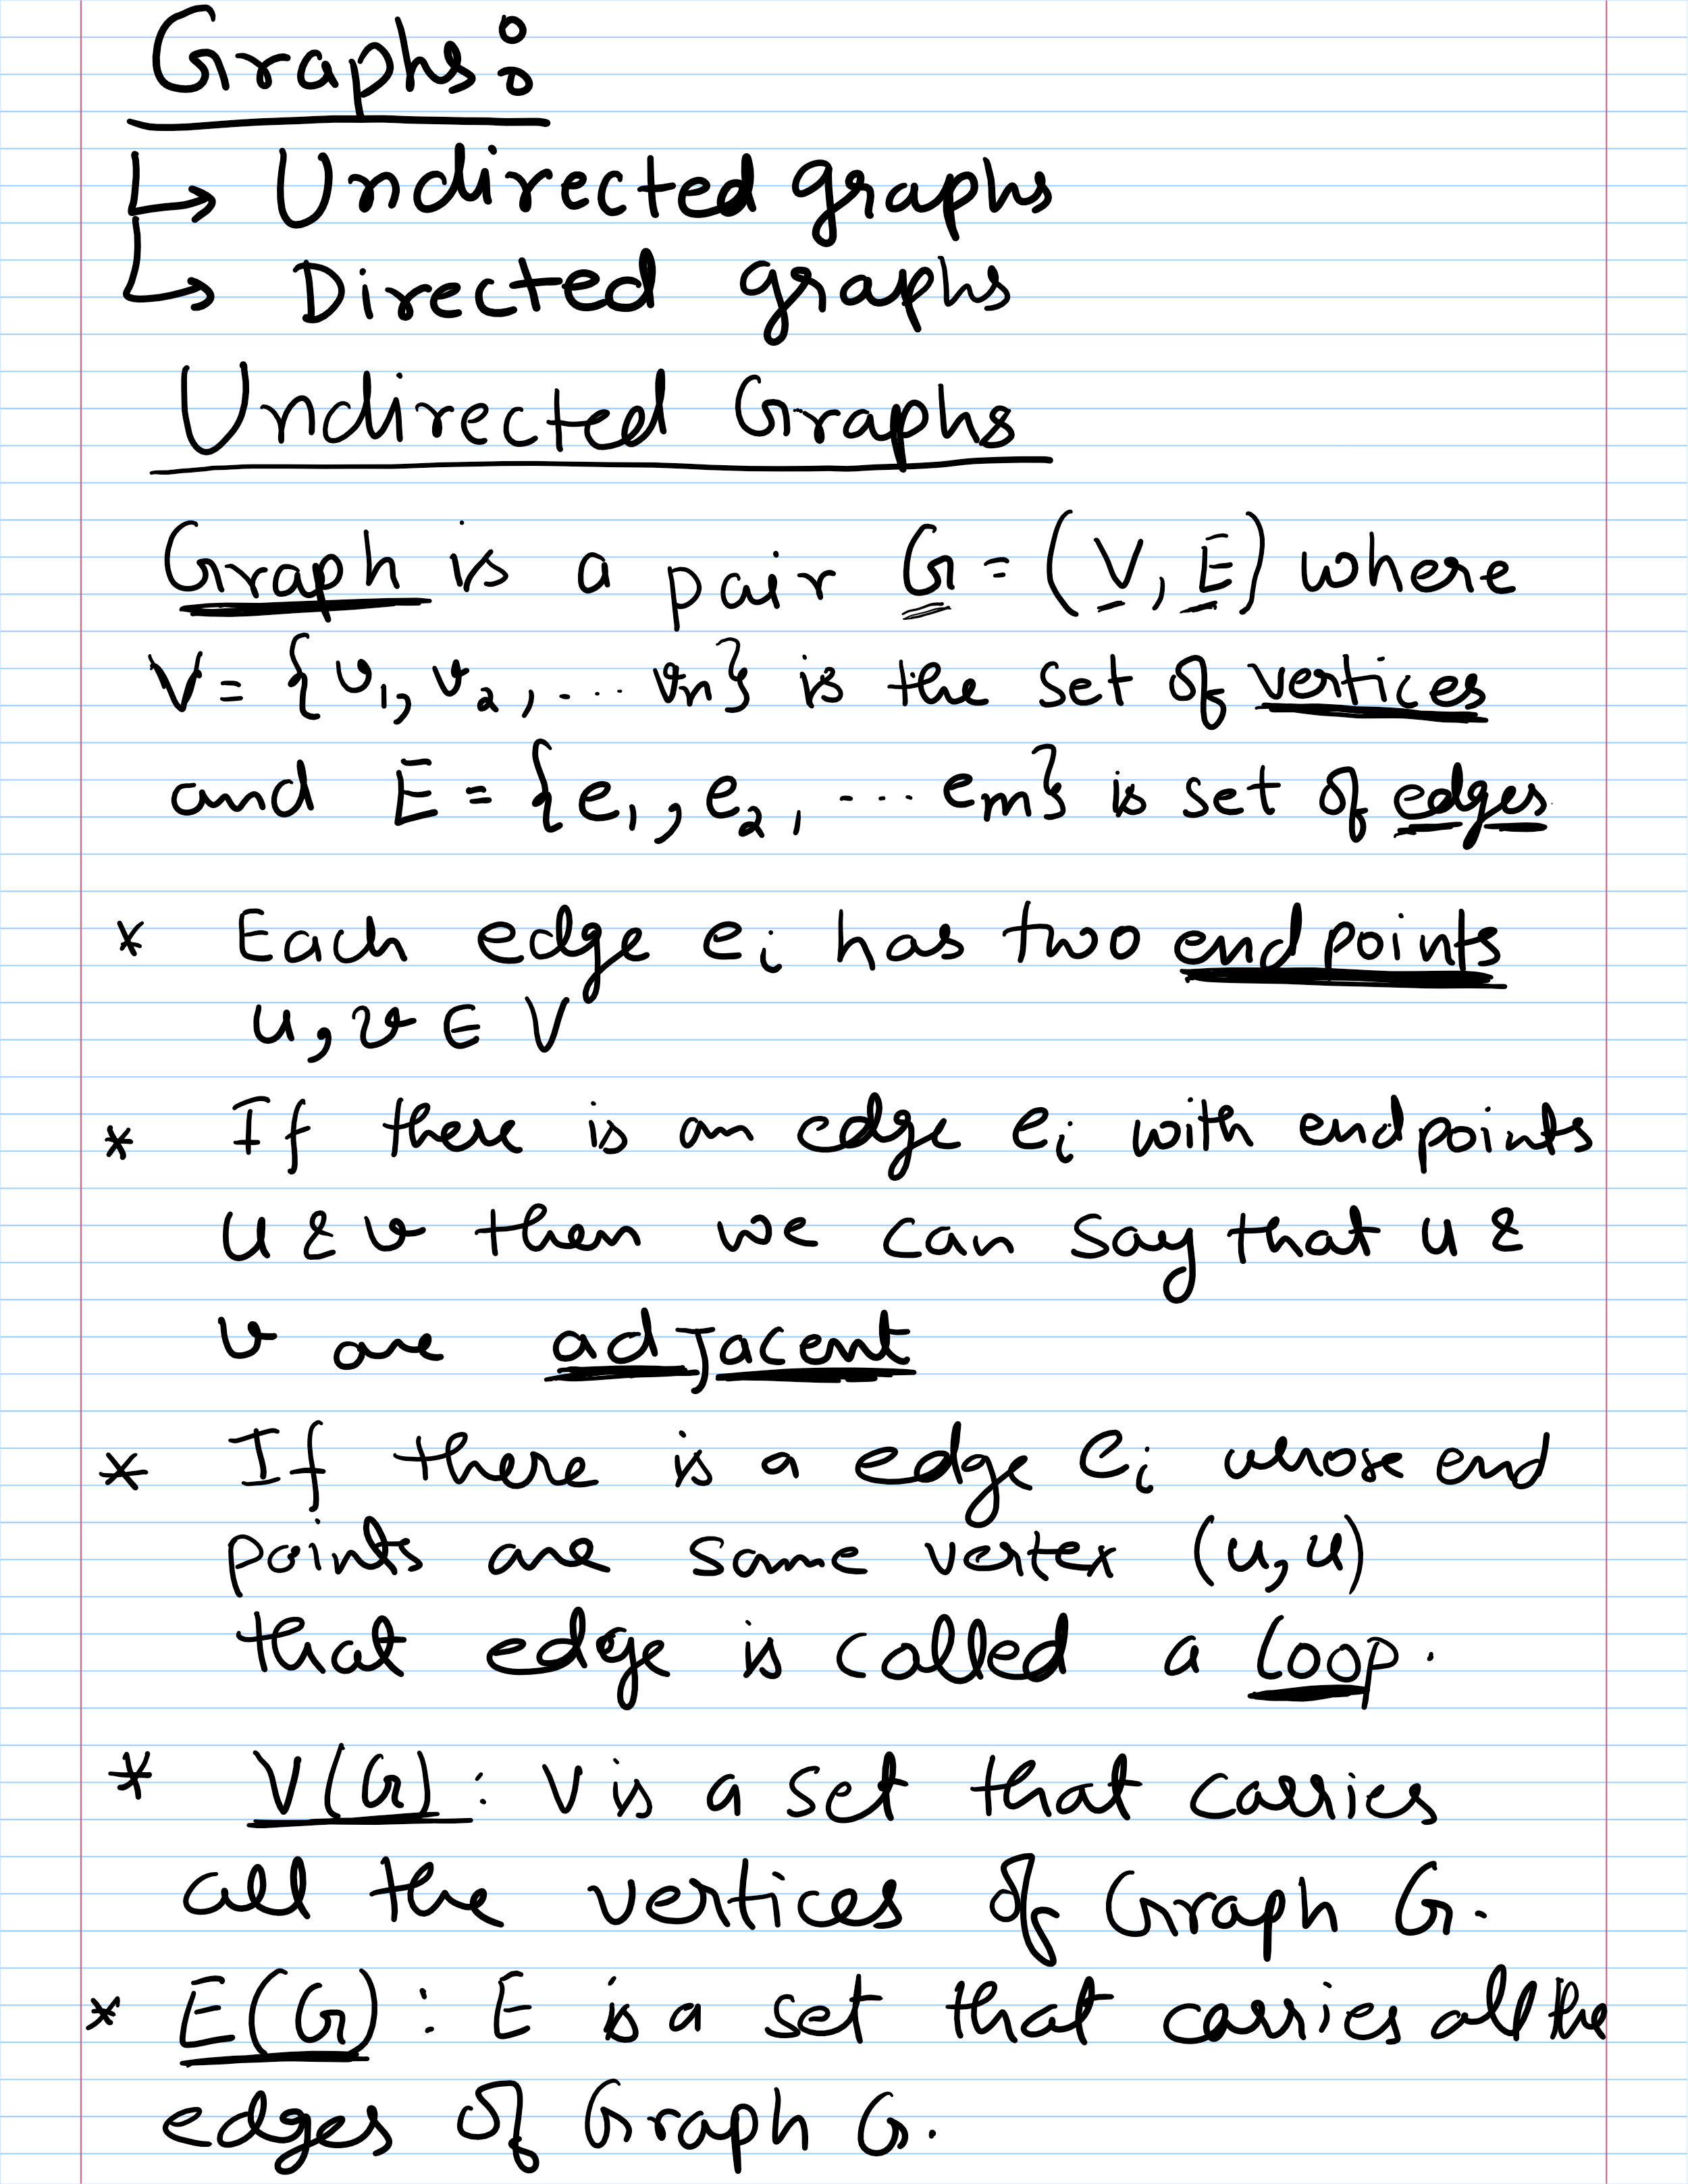 Graphs:
↳ Undirected graphs
↳ Directed graphs
Undirected Graphs
Graph is a pair G = (V, E) where
V = {v1, v2, ... vn} is the set of vertices
and E = {e1, e2, ... em} is set of edges
* Each edge ei has two endpoints
u, v ∈ V
* If there is an edge ei with endpoints
u & v then we can say that u &
v are adjacent
* If there is a edge ei whose end
points are same vertex (u,u)
that edge is called a loop.
* V(G): V is a set that carries
all the vertices of Graph G.
* E(G): E is a set that carries all the
edges of Graph G.